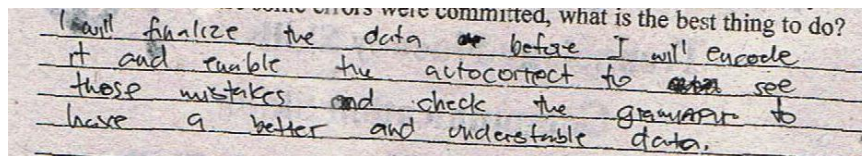 some errors were committed, what is the best thing to do?
I will finalize the data before I will encode
it and enable the autocorrect to see
those mistakes and check the grammar to
have a better and understable data.